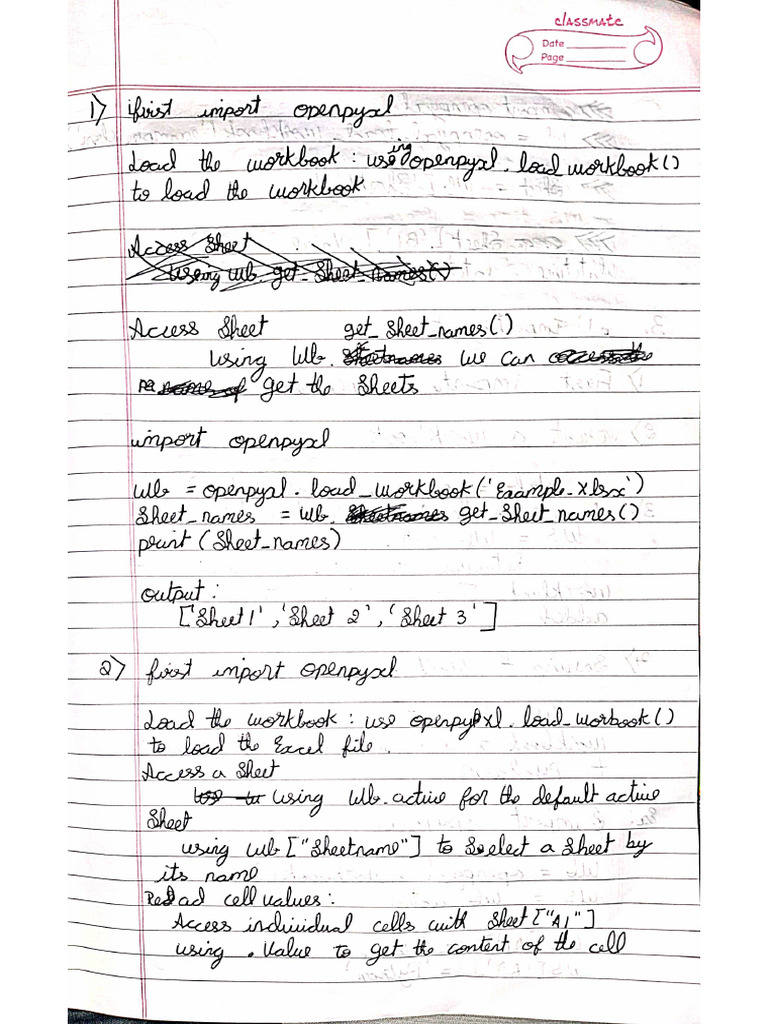 classmate
Date
Page
1) first import openpyxl
Load the workbook : using openpyxl. load_workbook()
to load the workbook
Access Sheet
Using wb. get_Sheet_names()
Access Sheet get_Sheet_names()
using wb. Sheetnames we can access the
names of get the Sheets
import openpyxl
wb = openpyxl. load_workbook('Example.xlsx')
Sheet_names = wb. Sheetnames get_Sheet_names()
print (Sheet_names)
output :
['Sheet 1', 'Sheet 2', 'Sheet 3']
2) first import openpyxl
Load the workbook : use openpyxl. load_worbook()
to load the Excel file.
Access a Sheet
using wb.active for the default active
Sheet
using wb ["Sheetname"] to Select a Sheet by
its name
Read cell values :
Access individual cells with Sheet ["A1"]
using . Value to get the content of the cell